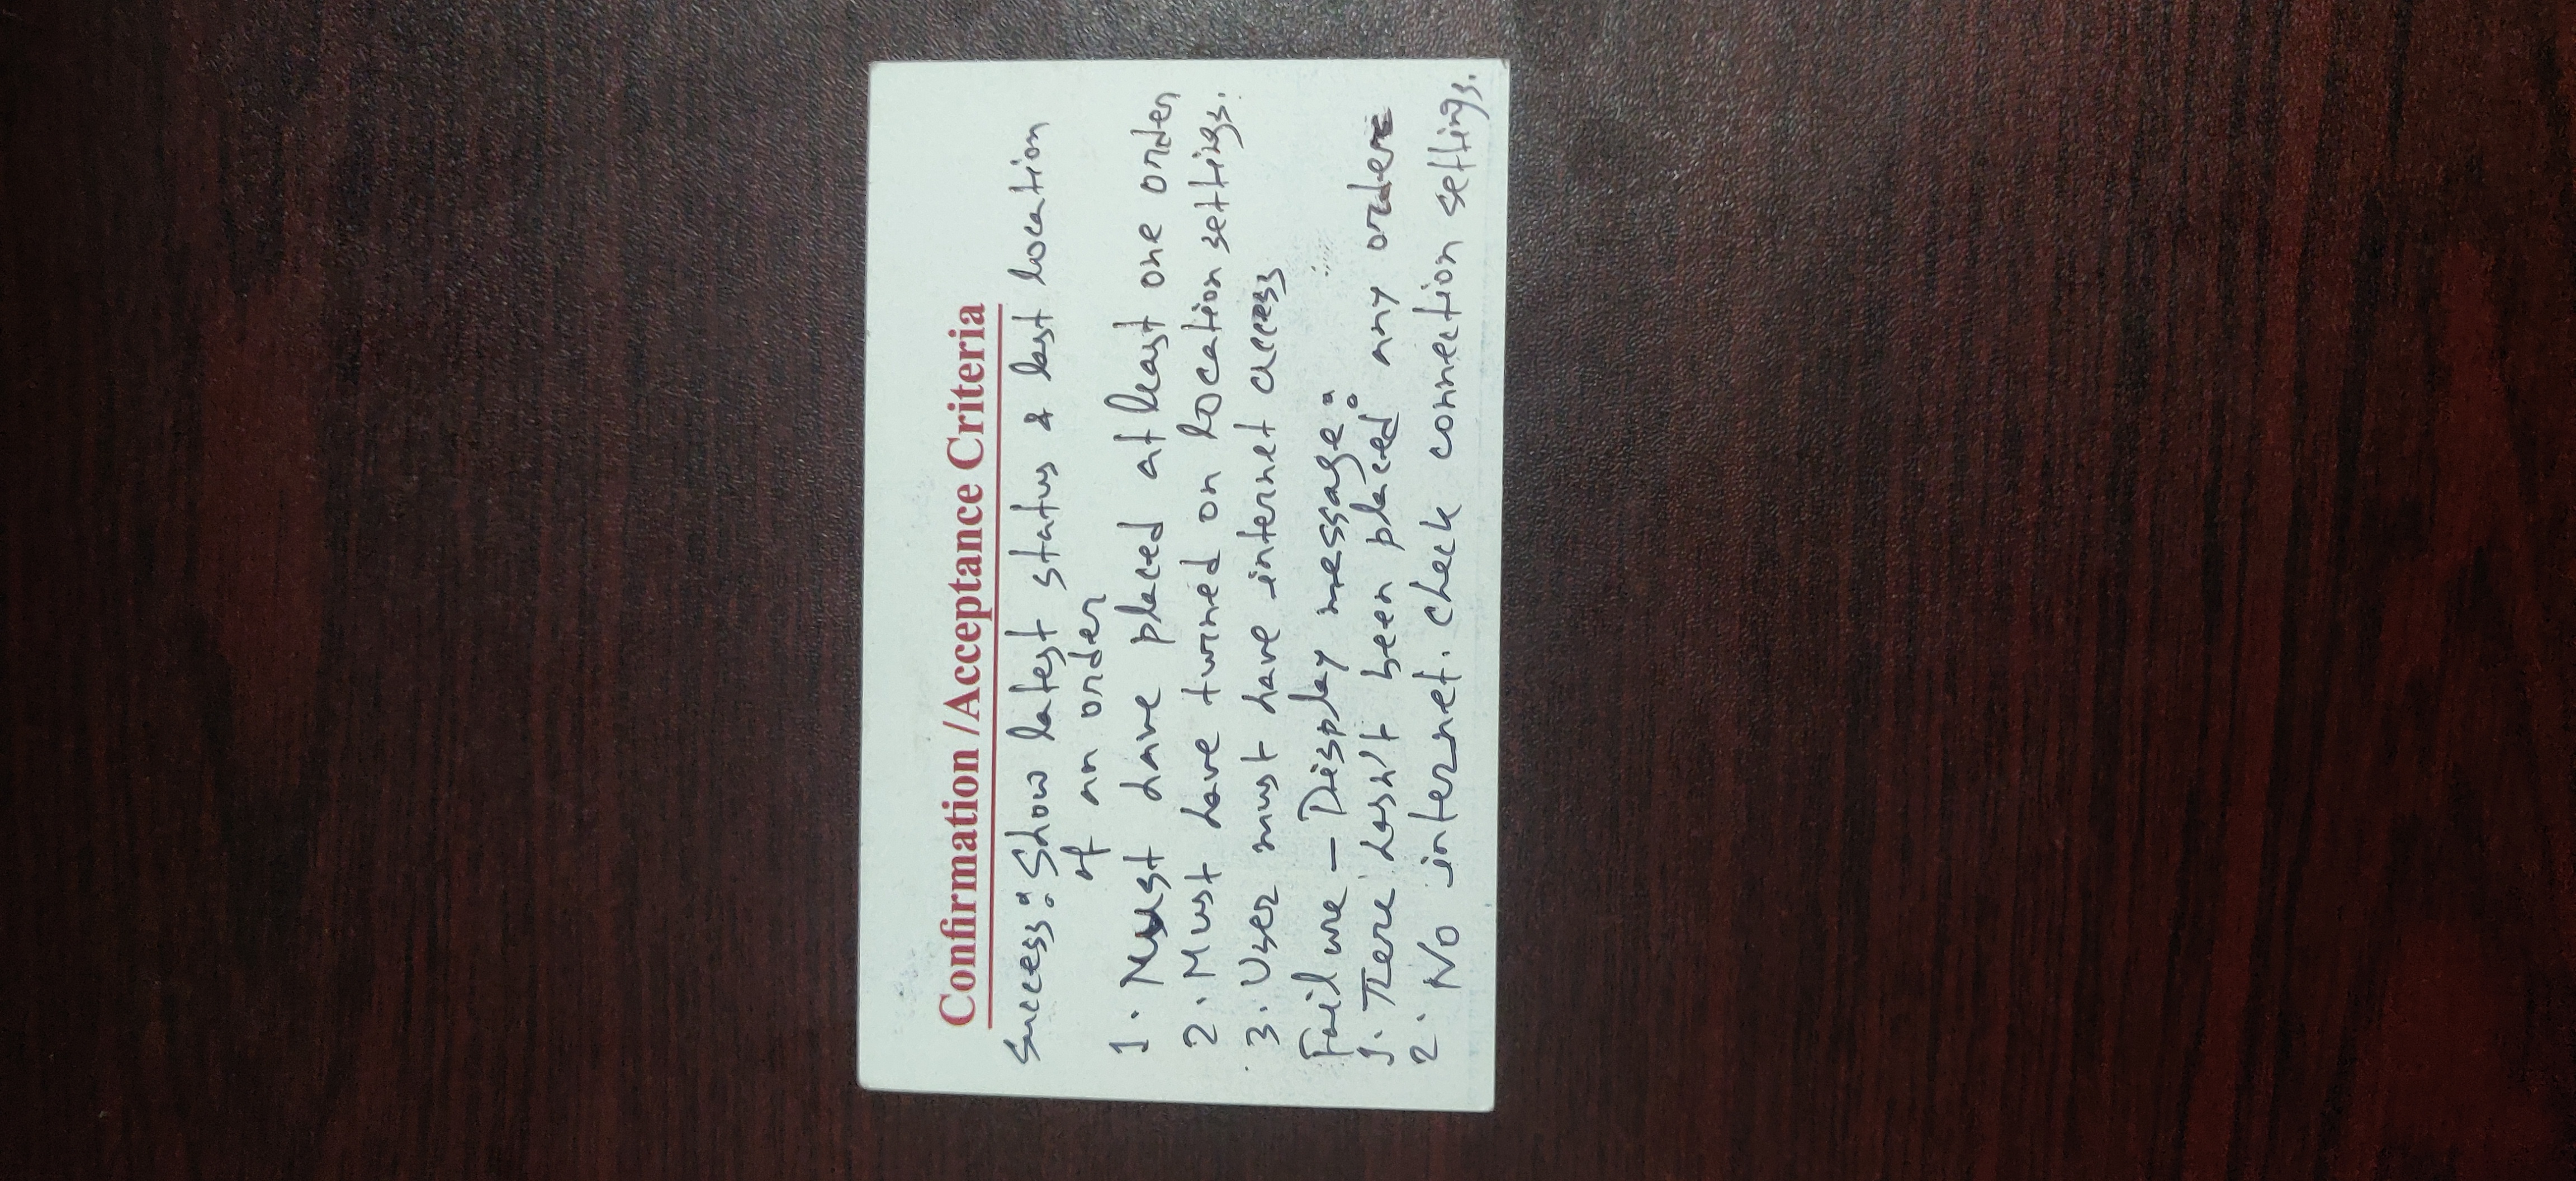 Confirmation /Acceptance Criteria
Success: Show latest status & last location
of an order
1. Must have placed at least one order
2. Must have turned on location settings.
3. User must have internet access
Failure - Display message:
1. There hasn't been placed any order
2. No internet. Check connection settings.